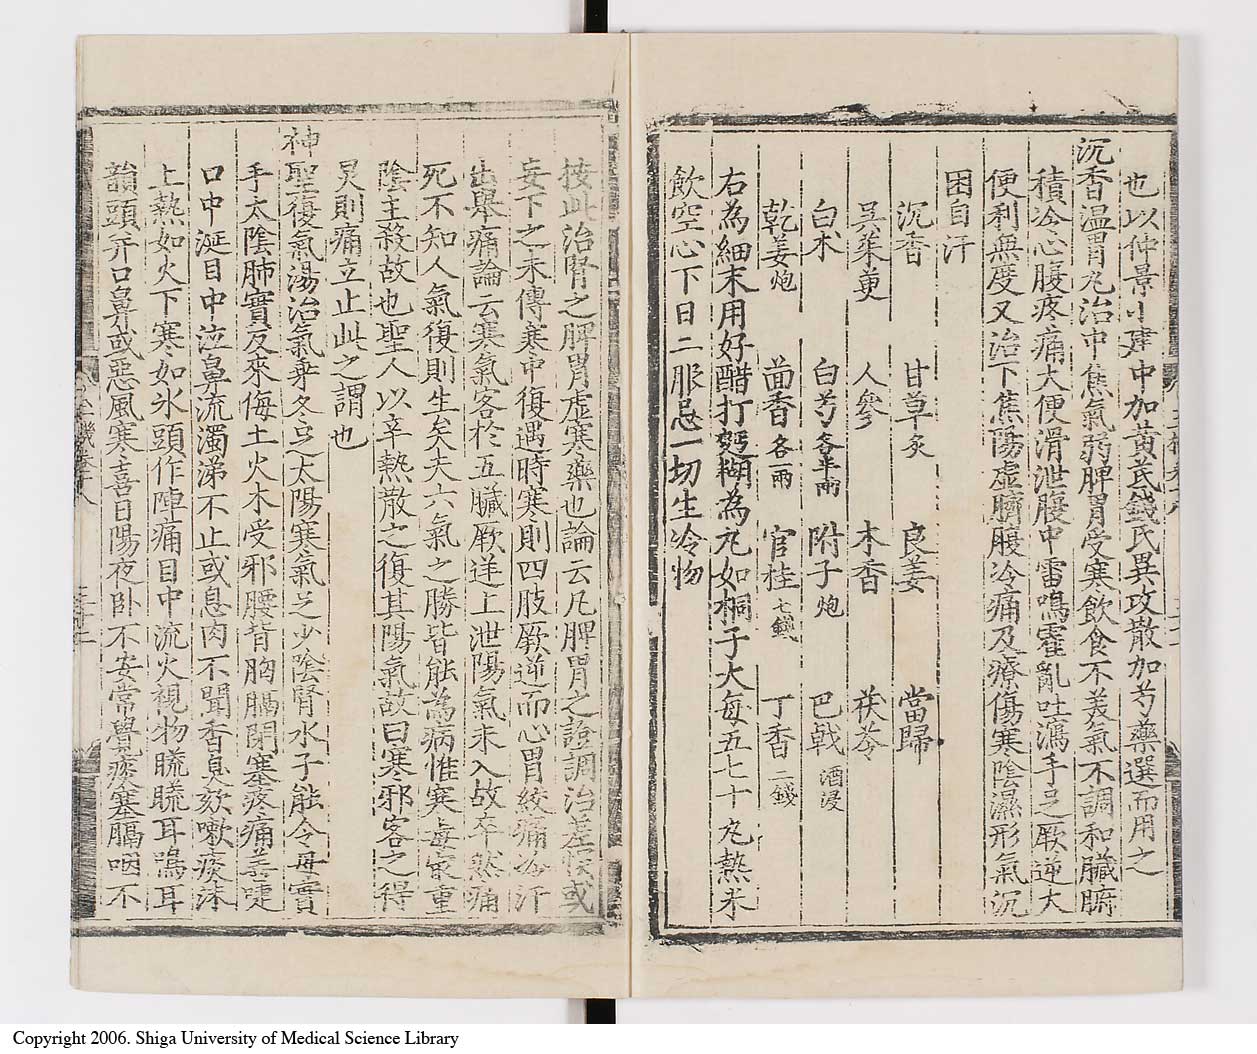 也以仲景小建中加黄芪錢氏異攻散加芍藥選而用之
沉香温胃丸治中焦氣弱脾胃受寒飲食不美氣不調和臟腑
積冷心腹疼痛大便滑泄腹中雷鳴霍亂吐瀉手足厥逆大
便利無度又治下焦陽虚臍腹冷痛及療傷寒陰濕形氣沉
困自汗
沉香 甘草炙 良姜 當歸
吳茱萸 人參 木香 茯苓
白术 白芍各半兩 附子炮 巴戟酒浸
乾姜炮 茴香各一兩 官桂七錢 丁香二錢
右為細末用好醋打麪糊為丸如桐子大每五七十丸熱米
飲空心下日二服忌一切生冷物
按此治腎之脾胃虚寒藥也論云凡脾胃之證調治差悞或
妄下之末傳寒中復遇時寒則四肢厥逆而心胃絞痛冷汗
出舉痛論云寒氣客於五臟厥逆上泄陽氣未入故卒然痛
死不知人氣復則生矣夫六氣之勝皆能為病惟寒毒最重
陰主殺故也聖人以辛熱散之復其陽氣故曰寒邪客之得
炅則痛立止此之謂也
神聖復氣湯治氣乗冬足太陽寒氣足少陰腎水子能令母實
手太陰肺實反來侮土火木受邪腰背胸膈閉塞疼痛善嚏
口中涎目中泣鼻流濁涕不止或息肉不聞香臭欬嗽痰沫
上熱如火下寒如氷頭作陣痛目中流火視物䀮䀮耳鳴耳
聾頭并口鼻或惡風寒喜日陽夜卧不安常覺痰塞膈咽不